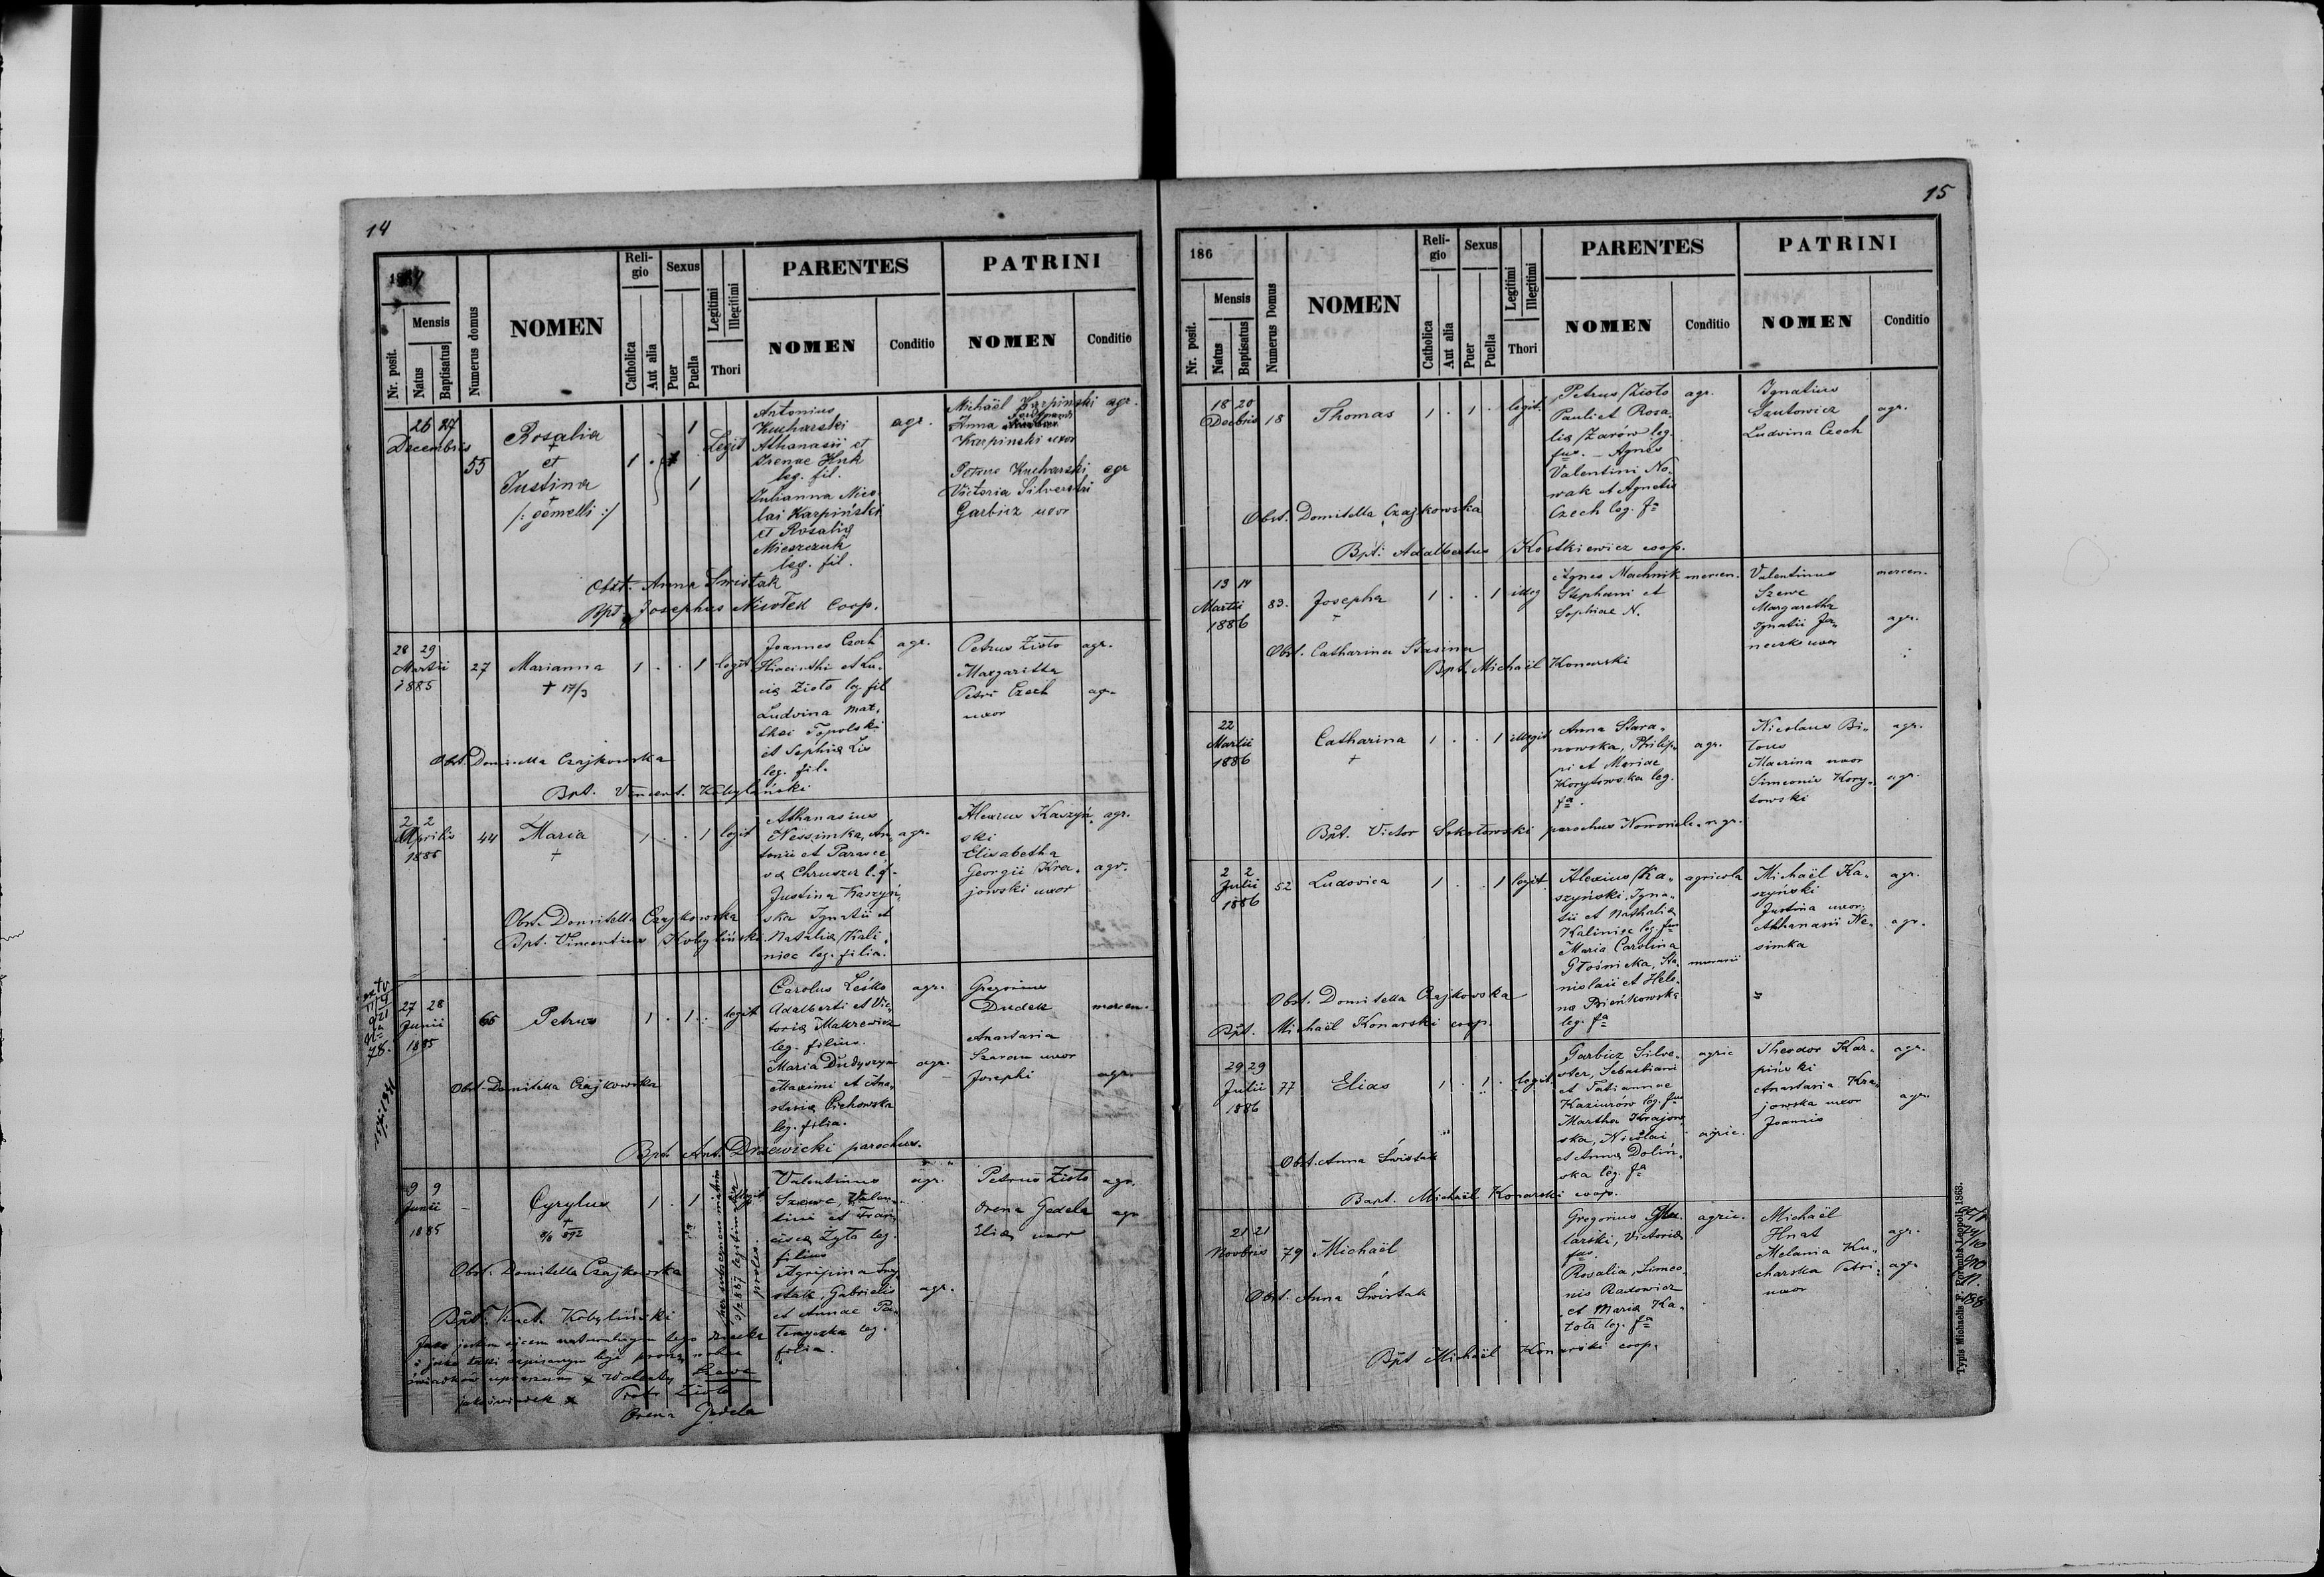 14
Mensis
Nr. posit.
Natus
Baptisatus
Numerus domus
NOMEN
Reli-
gio
Catholica
Aut alia
Sexus
Puer
Puella
Legitimi
Illegitimi
Thori
PARENTES
NOMEN
Conditio
PATRINI
NOMEN
Conditio
26 27
Decembris
55
Rosalia
+
et
Justina
+
/: gemelli :/
1 .
1
1
Legit
Antonius
Kucharski
Athanasii et
Irenae Hnk
leg. fil.
Julianna Nico
lai Karpiński
et Rosalia
Mieszczuk
leg. fil.
agr.
Michaël Karpinski agr.
Anna
Karpinski uxor
Petrus Kucharski agr
Victoria Silvestri
Garbicz uxor
Obst. Anna Swistak
Bpt. Josephus Niwołek Coop.
28 29
Martii
1885
27
Marianna
+ 17/3
1 . . 1 legit
Joannes Czech
Hiacinthi et Lu-
cia Zioto leg. fil
Ludvina Mat-
thei Topolski
et Sophia Lis
leg. fil.
agr.
Petrus Zioto agr.
Margaritta
Petri Czech agr
uxor
Obst. Domitella Czajkowska
Bpt. Vincent. Kobyliński
2 2
Aprilis
1885
44
Maria
+
1 . . 1 legit
Athanasius
Nessimka, An-
tonii et Parasce
va Chruszcz l. f.
Justina Kaszyń-
ska Ignatii et
Natalia Kali-
nisc leg. filia.
agr.
Alexius Kaszyń- agr.
ski
Elisabetha
Georgii Kra- agr.
jowski uxor
Obst. Domitella Czajkowska
Bpt. Vincentius Kobyliński
27 28
Junii
1885
66
Petrus
1 . 1 . legit
Carolus Leśko
Adalberti et Vic-
toria Makrewicz
leg. filius.
Maria Dudyszyn
Maximi et Ana-
stasia Cichowska
leg. filia.
agr.
agr.
Gregorius
Dudek mercen.
Anastasia
Szaran uxor
Josephi agr.
Obst. Domitella Czajkowska
Bpt. Ant. Drzewicki parochus.
9 9
Junii
1885
Cyrylus
+
8/8 892
1 . 1 illegit
per subsequens matrim
9/2 887 legitimatur
proles.
Valentinus
Szewc Valen-
tini et Fran-
cisca Żyta leg.
filius
Agripina Świ
stak, Gabrielis
et Annae Pa-
tenyczka leg.
filia.
agr.
agr.
Petrus Zioto agr.
Orena Gedela agr
Elia uxor
Obst. Domitella Czajkowska
Bpt. Vinct. Kobyliński
Jako jestem ojcem naturalnym tego dziecka
i jako taki zapisanym być proszę wobec
świadków uproszonych x Walenty Szewc
jako świadek x Piotr Zioto
Orena Gedela
15
186
Mensis
Nr. posit.
Natus
Baptisatus
Numerus Domus
NOMEN
Reli-
gio
Catholica
Aut alia
Sexus
Puer
Puella
Legitimi
Illegitimi
Thori
PARENTES
NOMEN
Conditio
PATRINI
NOMEN
Conditio
18 20
Decbris
18
Thomas
1 . 1 . legit.
Petrus Zioto
Pauli et Rosa-
lia Żarów leg.
fus. - Agnes
Valentini No-
wak et Agnetis
Czech leg. fa
agr.
Ignatius
Szutowicz agr.
Ludvina Czech
Obst. Domitella Czajkowska
Bpt. Adalbertus Kostkiewicz coop.
13 14
Martii
1886
83.
Josepha
+
1 . . 1 illeg
Agnes Machnik
Stephani et
Sophiae N.
mercen.
Valentinus mercen.
Szewc
Margaretha
Ignatii Ja- agr.
necsko uxor
Obst. Catharina Stasina
Bpt. Michaël Konarski
22
Martii
1886
Catharina
+
1 . . 1 illegit
Anna Stara-
nowska, Philip-
pi et Mariae
Korytowska leg.
fa.
agr.
Nicolaus Bi- agr.
tous
Macrina uxor
Simeonis Kory- agr.
towski
Bpt. Victor Sokołowski parochus
2 2
Julii
1886
52
Ludovica
1 . . 1 legit
Alexius Ka-
szyński, Igna-
tii et Nathalia
Kalinisc leg. fus
Maria Carolina
Głośnicka, Sta-
nislaii et Hele-
na Bieńkowska
leg. fa
agricola
murarii
Michaël Ka- agr.
szyński
Justina uxor
Athanasii Ne- agr.
simka
Obst. Domitella Czajkowska
Bpt. Michaël Konarski coop.
29 29
Julii
1886
77
Elias
1 . 1 . legit.
Garbicz Silve-
ster, Sebastiani
et Tatiannae
Kaziurów leg. fus
Martha Krajow-
ska, Nicolai
et Anna Doliń-
ska leg. fa
agric
agric.
Theodor Kar- agr.
piński
Anastasia Kra-
jowska uxor agr.
Joannis
Obst. Anna Świstak
Bapt. Michaël Konarski coop.
21 21
Novbris
79
Michaël
Gregorius
larski, Victoria
fus.
Rosalia, Simeo-
nis Raxowicz
et Maria Ka-
tota leg. fa
agric.
Michaël
Hnat agr.
Melania Ku-
charska Petri agr.
uxor
Obst. Anna Świstak
Bpt Michaël Konarski coop.
Typis Michaelis F. Poremba Leopoli 1863.